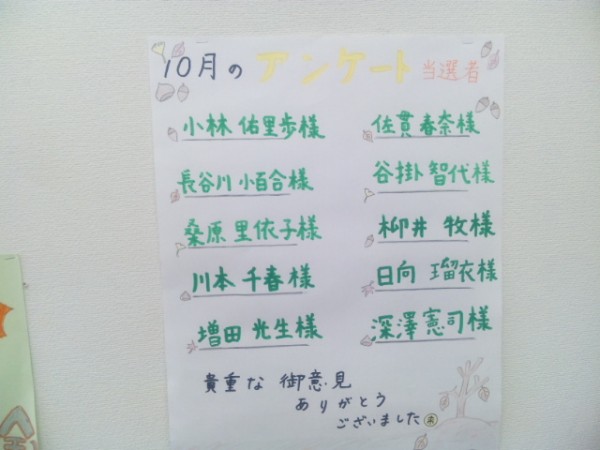 10月のアンケート当選者
小林 佑里歩様
長谷川 小百合様
桑原 里依子様
川本 千春様
増田 光生様
佐貫 春奈様
谷掛 智代様
柳井 牧様
日向 瑠衣様
深澤憲司様
貴重な 御意見
ありがとう
ございました